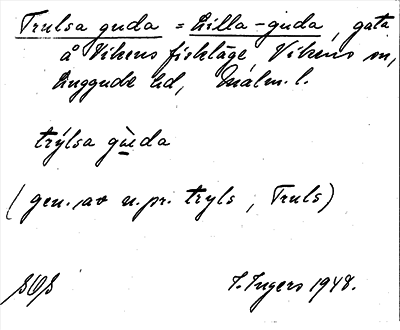 Trulsa guda = Lilla-guda, gata
å Vikens fiskläge, Vikens sn,
Luggude hd, Malm. l.
trýlsa gùda
(gen. av n.pr. tryls, Truls)
I. Ingers 1948.